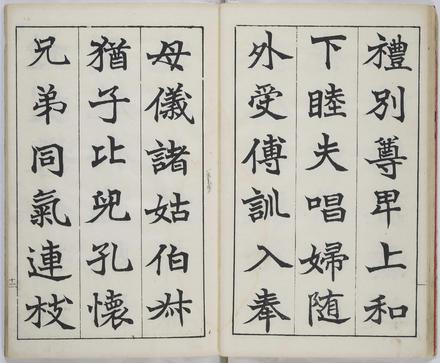 禮別尊卑上和
下睦夫唱婦随
外受傅訓入奉
母儀諸姑伯叔
猶子比兒孔懷
兄弟同氣連枝
十二